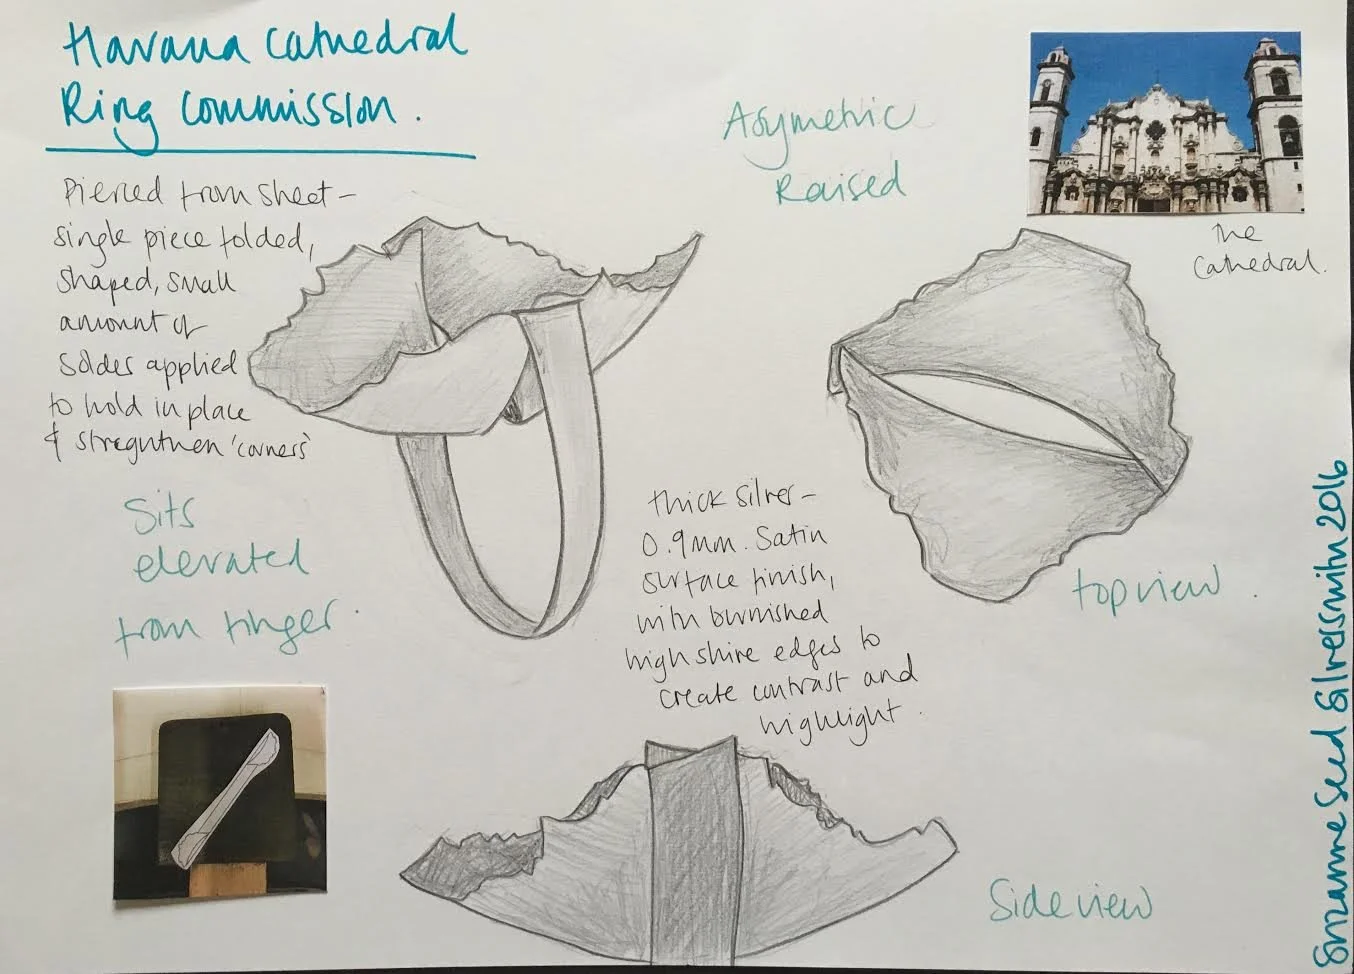 Havana Cathedral
Ring Commission.
Asymetric
Raised
The
Cathedral.
Pierced from sheet –
single piece folded,
shaped, small
amount of
solder applied
to hold in place
& stregnthen 'corners'
Sits
elevated
from finger.
thick silver –
0.9mm. Satin
surface finish,
with burnished
high shine edges to
create contrast and
highlight.
top view.
Side view
Suzanne Seed Silversmith 2016